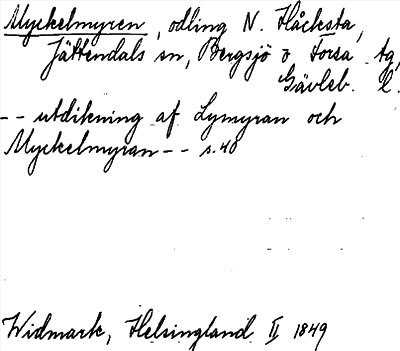 Myckelmyren, odling N. Håcksta,
Jättendals sn, Bergsjö o Forsa tg,
Gävleb. l.
-- utdikning af Lymyran och
Myckelmyran -- s. 40
Widmark, Helsingland II 1849